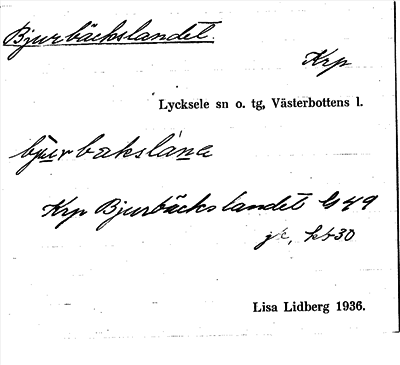 Bjurbäckslandet.
Krp
Lycksele sn o. tg, Västerbottens l.
Krp Bjurbäckslandet G 49
jk, kt 30
Lisa Lidberg 1936.